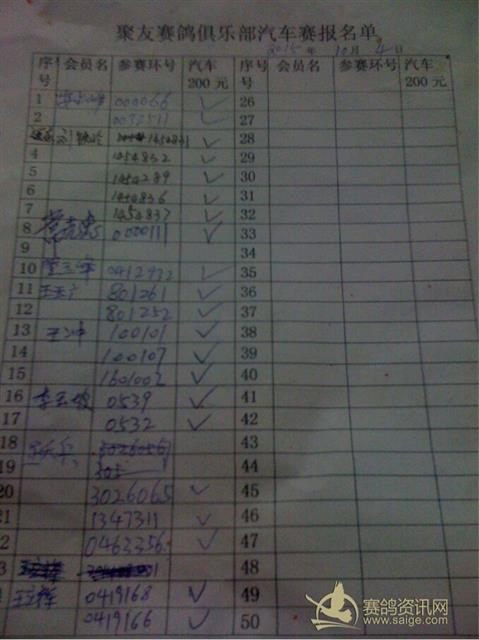 聚友赛鸽俱乐部汽车赛报名单
2015 年 10 月 4 日
序号 会员名 参赛环号 汽车200元 序号 会员名 参赛环号 汽车200元
1 000066 ✓ 26
2 0092511 ✓ 27
1454831 ✓ 28
4 1454832 ✓ 29
5 1454289 ✓ 30
6 1454836 ✓ 31
7 1454837 ✓ 32
8 000111 ✓ 33
9 34
10 0412972 ✓ 35
11 801261 ✓ 36
12 801252 ✓ 37
13 王冲 100101 ✓ 38
14 100107 ✓ 39
15 1601002 ✓ 40
16 0539 ✓ 41
17 0532 ✓ 42
18 43
19 44
20 3026065 ✓ 45
21 1347311 ✓ 46
22 0463356 ✓ 47
23 48
24 0419168 ✓ 49
0419166 ✓ 50
赛鸽资讯网
www.saige.com